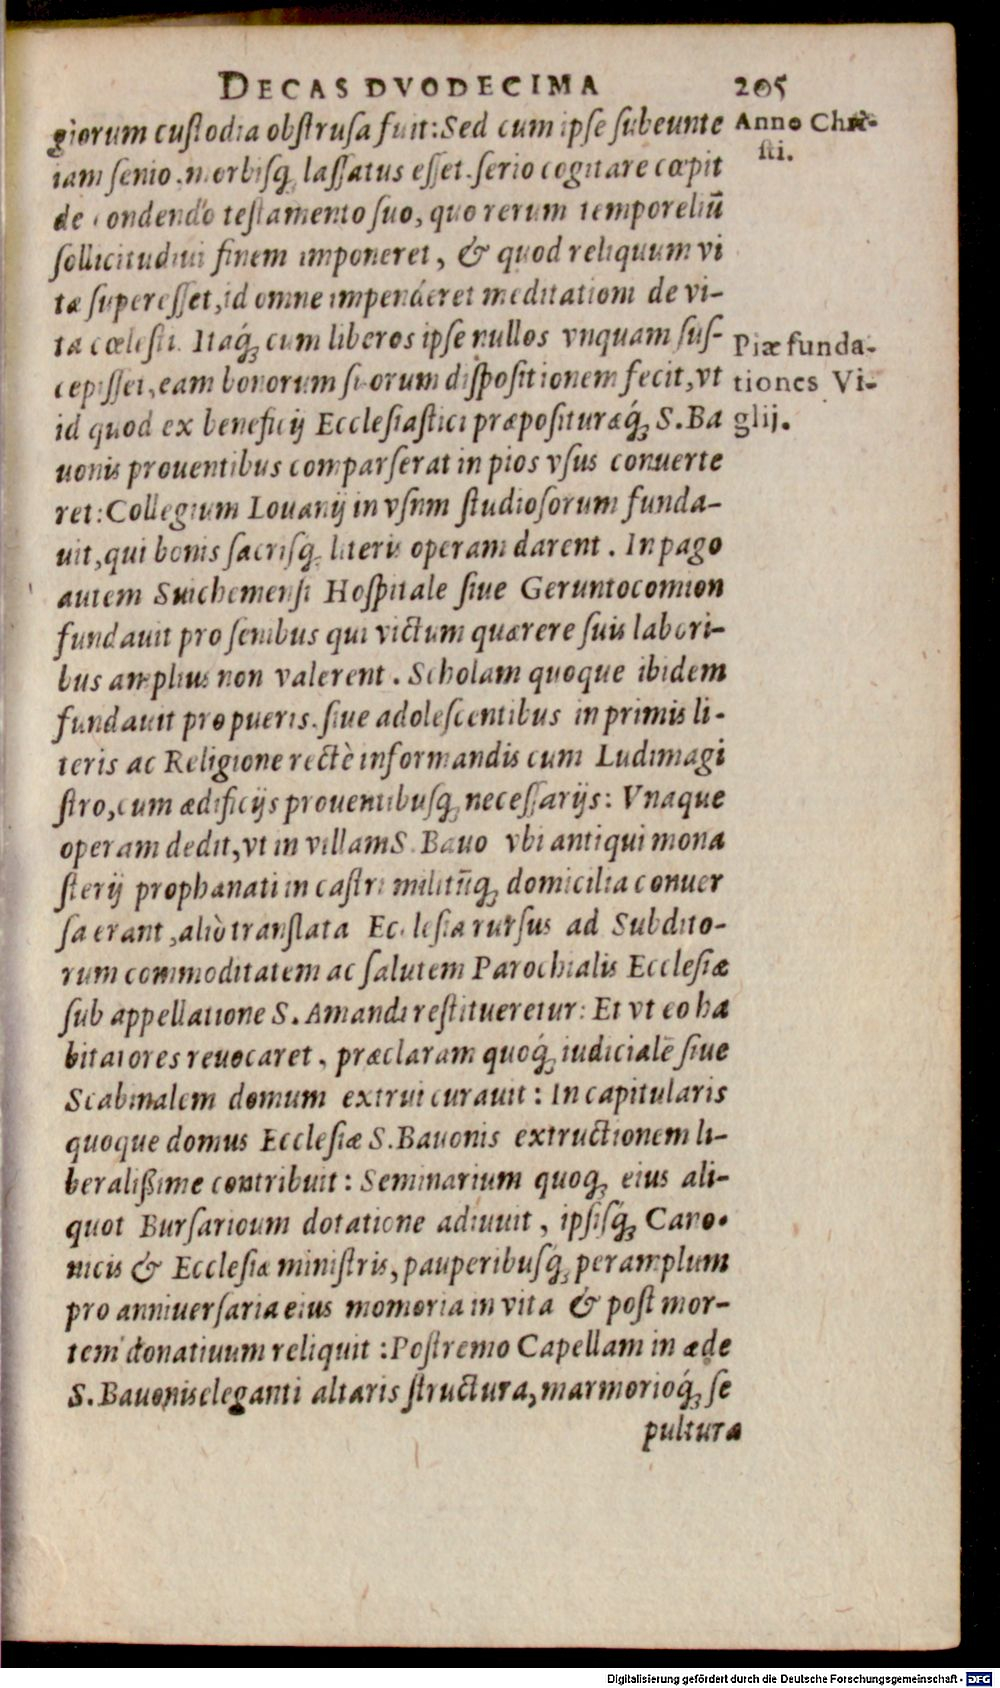 DECAS DVODECIMA 205
giorum custodia obstrusa fuit: Sed cum ipse subeunte
Anno Christi.
iam senio, morbisq; lassatus esset, serio cogitare cœpit
de condendo testamento suo, quo rerum temporeliū
sollicitudini finem imponeret, & quod reliquum vi
tæ superesset, id omne impenderet meditationi de vi-
ta cœlesti. Itaq́; cum liberos ipse nullos vnquam sus-
Piæ funda-
cepisset, eam bonorum suorum dispositionem fecit, vt
tiones Vi-
id quod ex beneficij Ecclesiastici præposituræq́; S. Ba
glij.
uonis prouentibus comparserat in pios vsus conuerte
ret: Collegium Louanij in vsnm studiosorum funda-
uit, qui bonis sacrisq; literis operam darent. In pago
autem Suichemensi Hospitale siue Geruntocomion
fundauit pro senibus qui victum quærere suis labori-
bus amplius non valerent. Scholam quoque ibidem
fundauit pro pueris. siue adolescentibus in primis li-
teris ac Religione rectè informandis cum Ludimagi
stro, cum ædificijs prouentibusq; necessarijs: Vnaque
operam dedit, vt in villam S. Bauo vbi antiqui mona
sterij prophanati in castri militūq; domicilia conuer
sa erant, aliò translata Ecclesia rursus ad Subdito-
rum commoditatem ac salutem Parochialis Ecclesiæ
sub appellatione S. Amandi restitueretur: Et vt eo ha
bitatores reuocaret, præclaram quoq́; iudicialē siue
Scabinalem domum extrui curauit: In capitularis
quoque domus Ecclesiæ S. Bauonis extructionem li-
beralißime contribuit: Seminarium quoq; eius ali-
quot Bursarioum dotatione adiuuit, ipsisq́; Cano-
nicis & Ecclesiæ ministris, pauperibusq́; peramplum
pro anniuersaria eius momoria in vita & post mor-
tem donatiuum reliquit: Postremo Capellam in æde
S. Bauonis eleganti altaris structura, marmorioq́; se
pultura
Digitalisierung gefördert durch die Deutsche Forschungsgemeinschaft - DFG